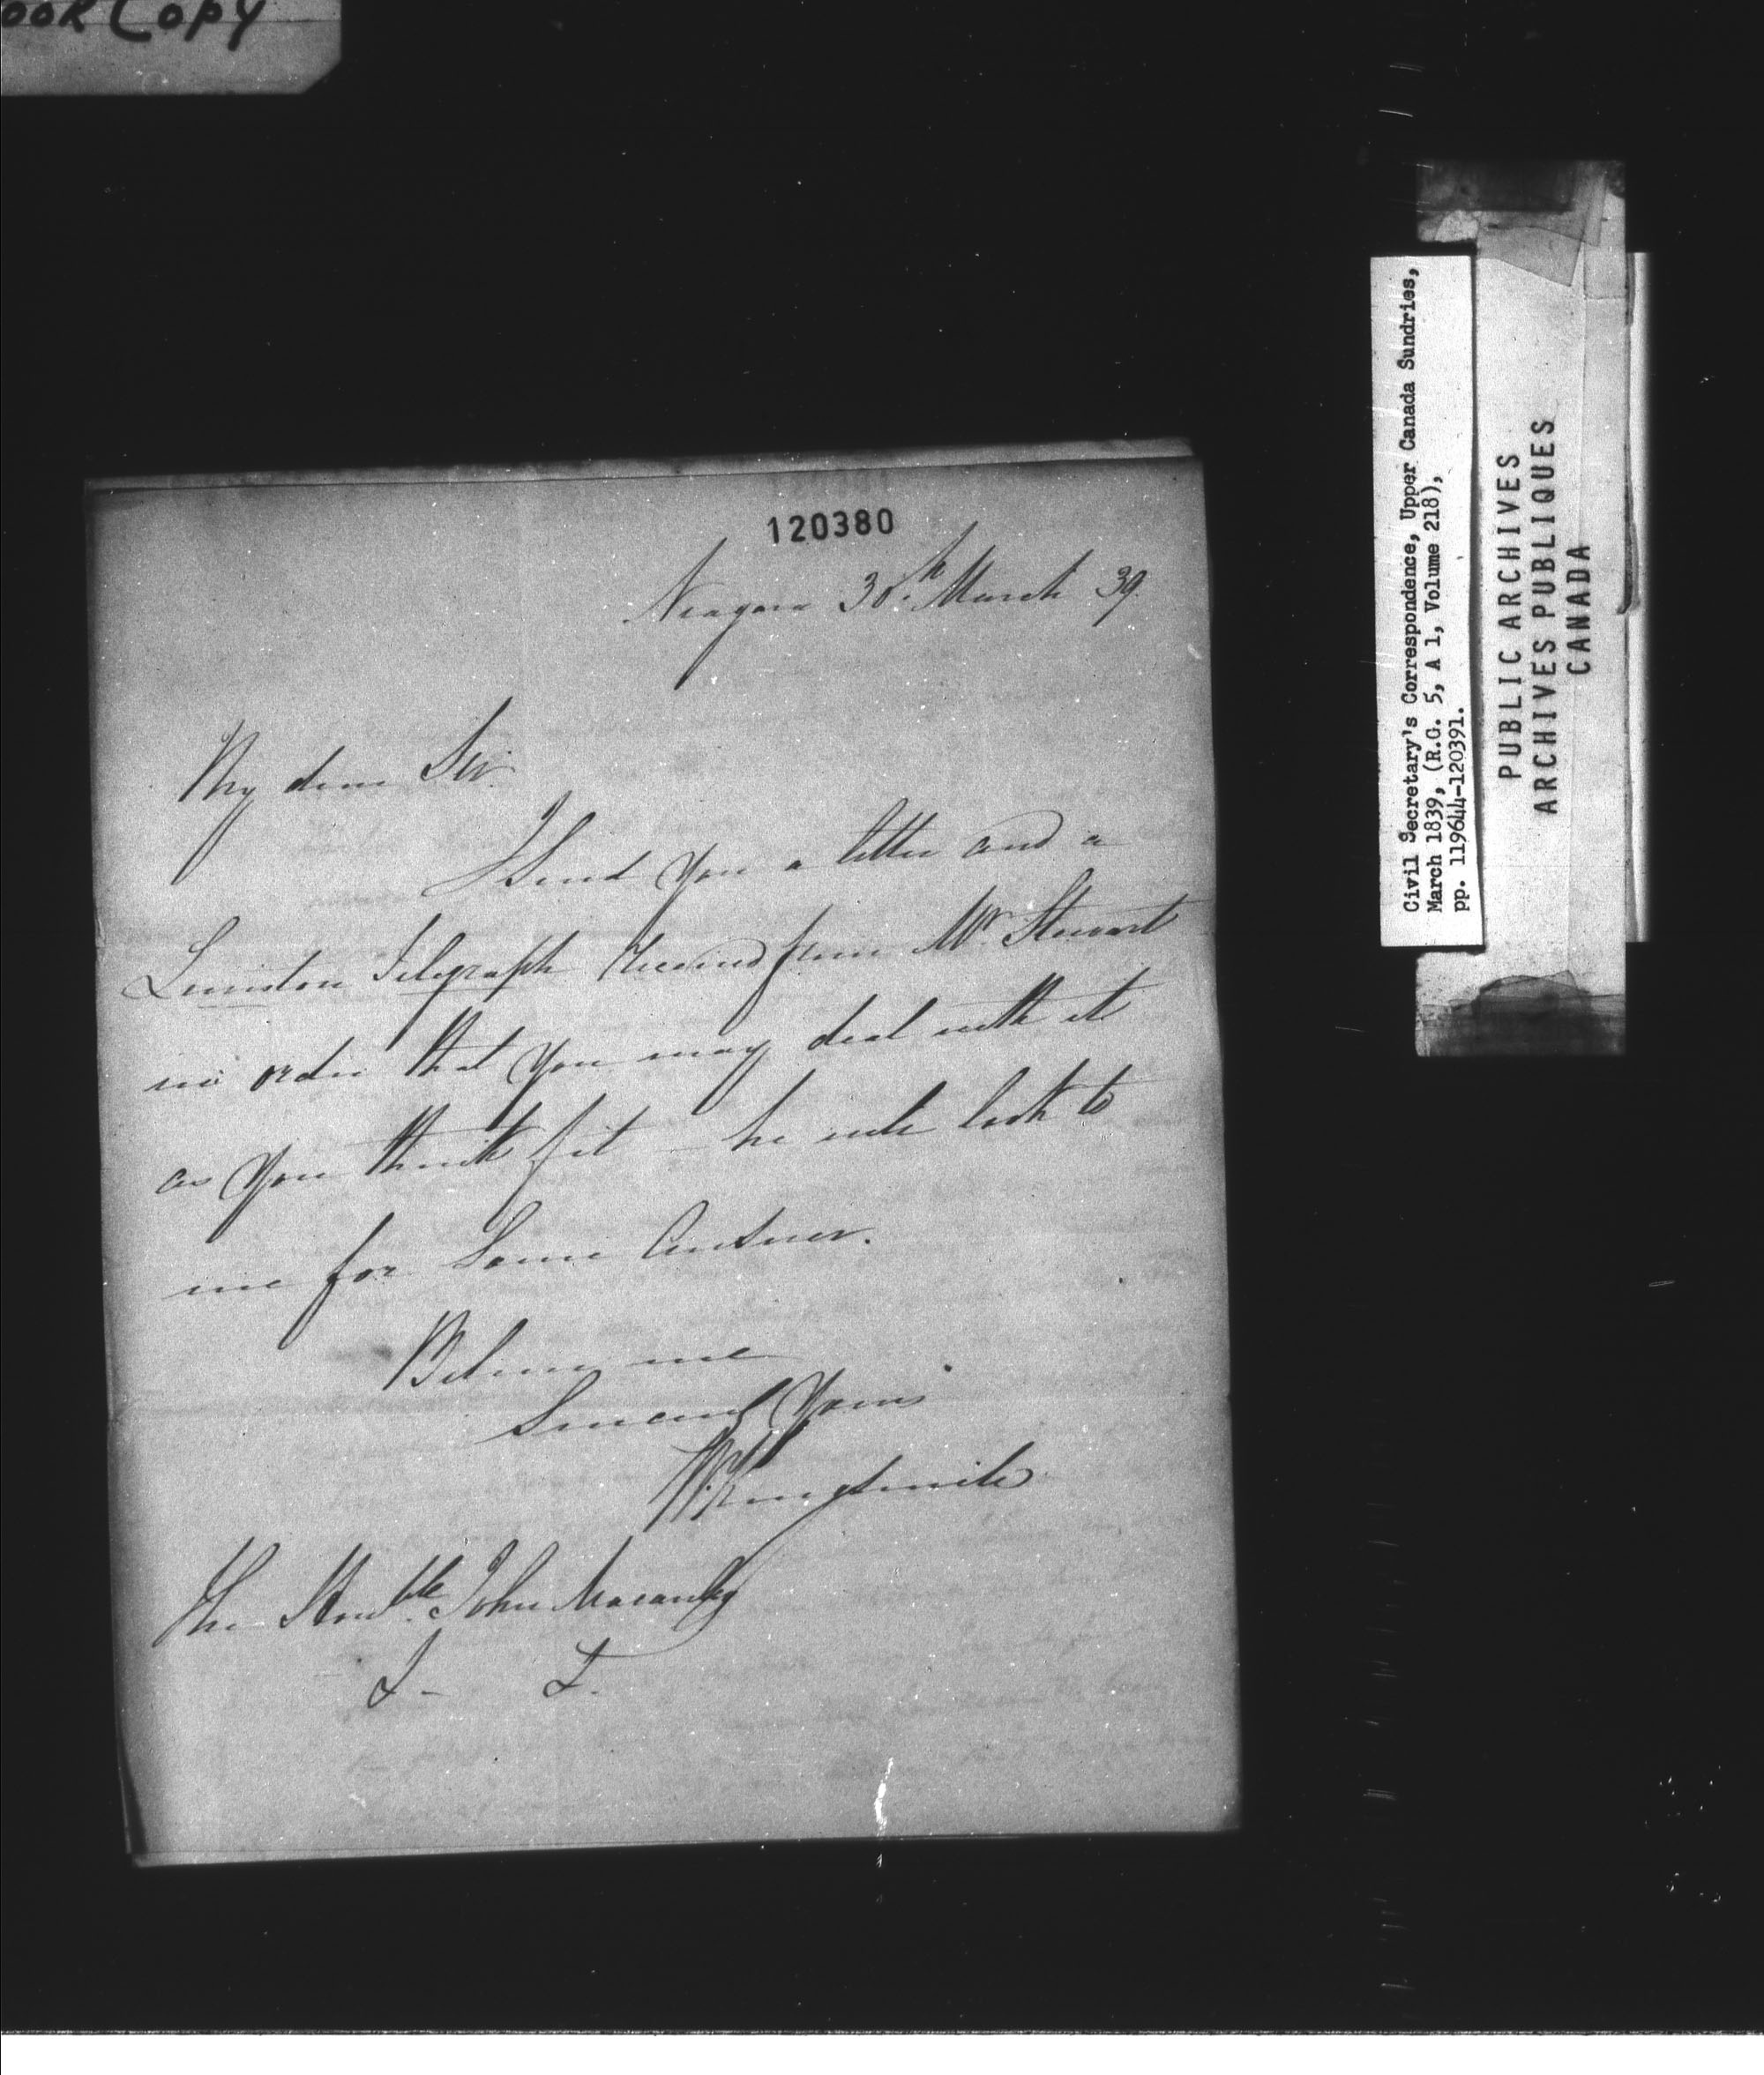 OOR COPY
120380
Niagara 30th March 39.
My dear Sir.
I Send you a letter and a
Lewiston Telegraph received from Mr. Stewart
in order that you may deal with it
as you think fit – he will look to
me for Some Answer.
Believe me
Sincerely Yours
W. Kingsmill
The Honble. John Macaulay
Civil Secretary's Correspondence, Upper Canada Sundries,
March 1839, (R.G. 5, A 1, Volume 218),
pp. 119644-120391.
PUBLIC ARCHIVES
ARCHIVES PUBLIQUES
CANADA